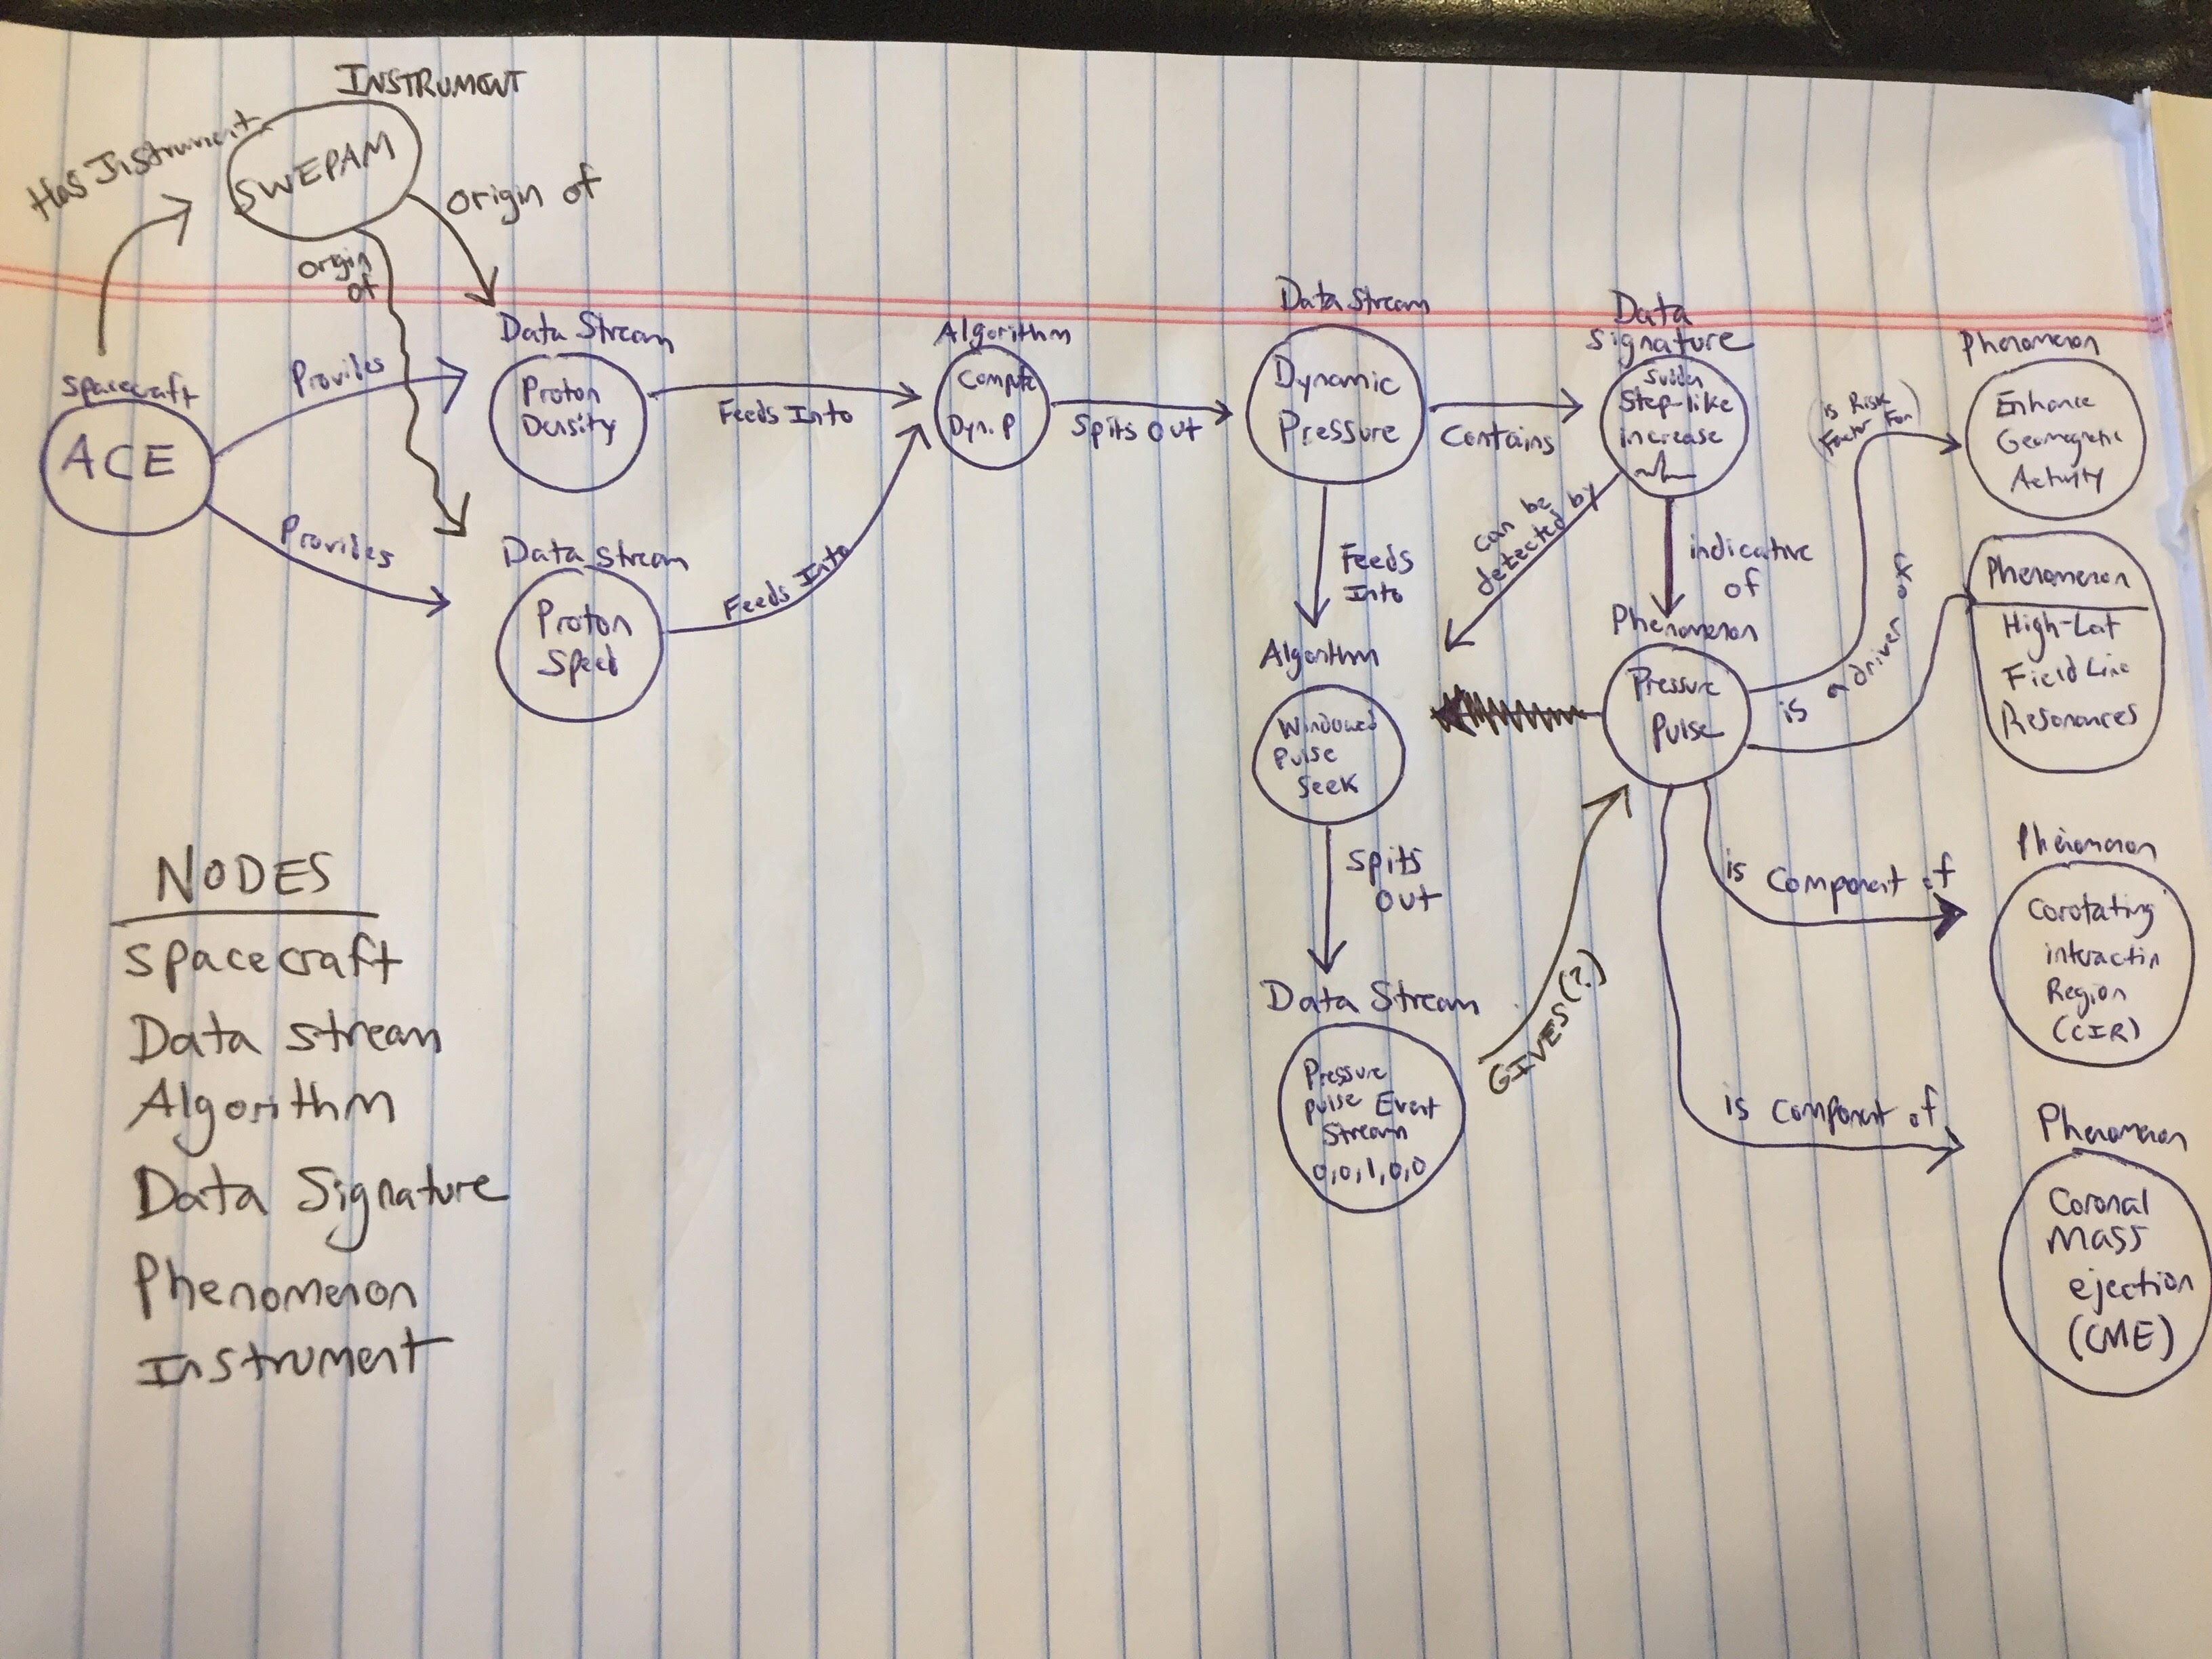 INSTRUMENT
SWEPAM
Has Instrument
origin of
origin
of
Spacecraft
ACE
Provides
Provides
Data Stream
Proton
Density
Data stream
Proton
Speed
Feeds Into
Feeds Into
Algorithm
Compute
Dyn. P
Spits Out
Data Stream
Dynamic
Pressure
Contains
Data
Signature
Sudden
Step-like
increase
can be
detected by
indicative
of
Feeds
Into
Algorithm
Windowed
Pulse
Seek
Spits
Out
Data Stream
Pressure
pulse Event
Stream
0,0,1,0,0
GIVES(?)
Phenomenon
Pressure
Pulse
is a driver of
(is Risk
Factor For)
Phenomenon
Enhance
Geomagnetic
Activity
Phenomenon
High-Lat
Field Line
Resonances
is component of
Phenomenon
Corotating
interactin
Region
(CIR)
is component of
Phenomenon
Coronal
Mass
ejection
(CME)
NODES
Spacecraft
Data stream
Algorithm
Data Signature
Phenomenon
Instrument